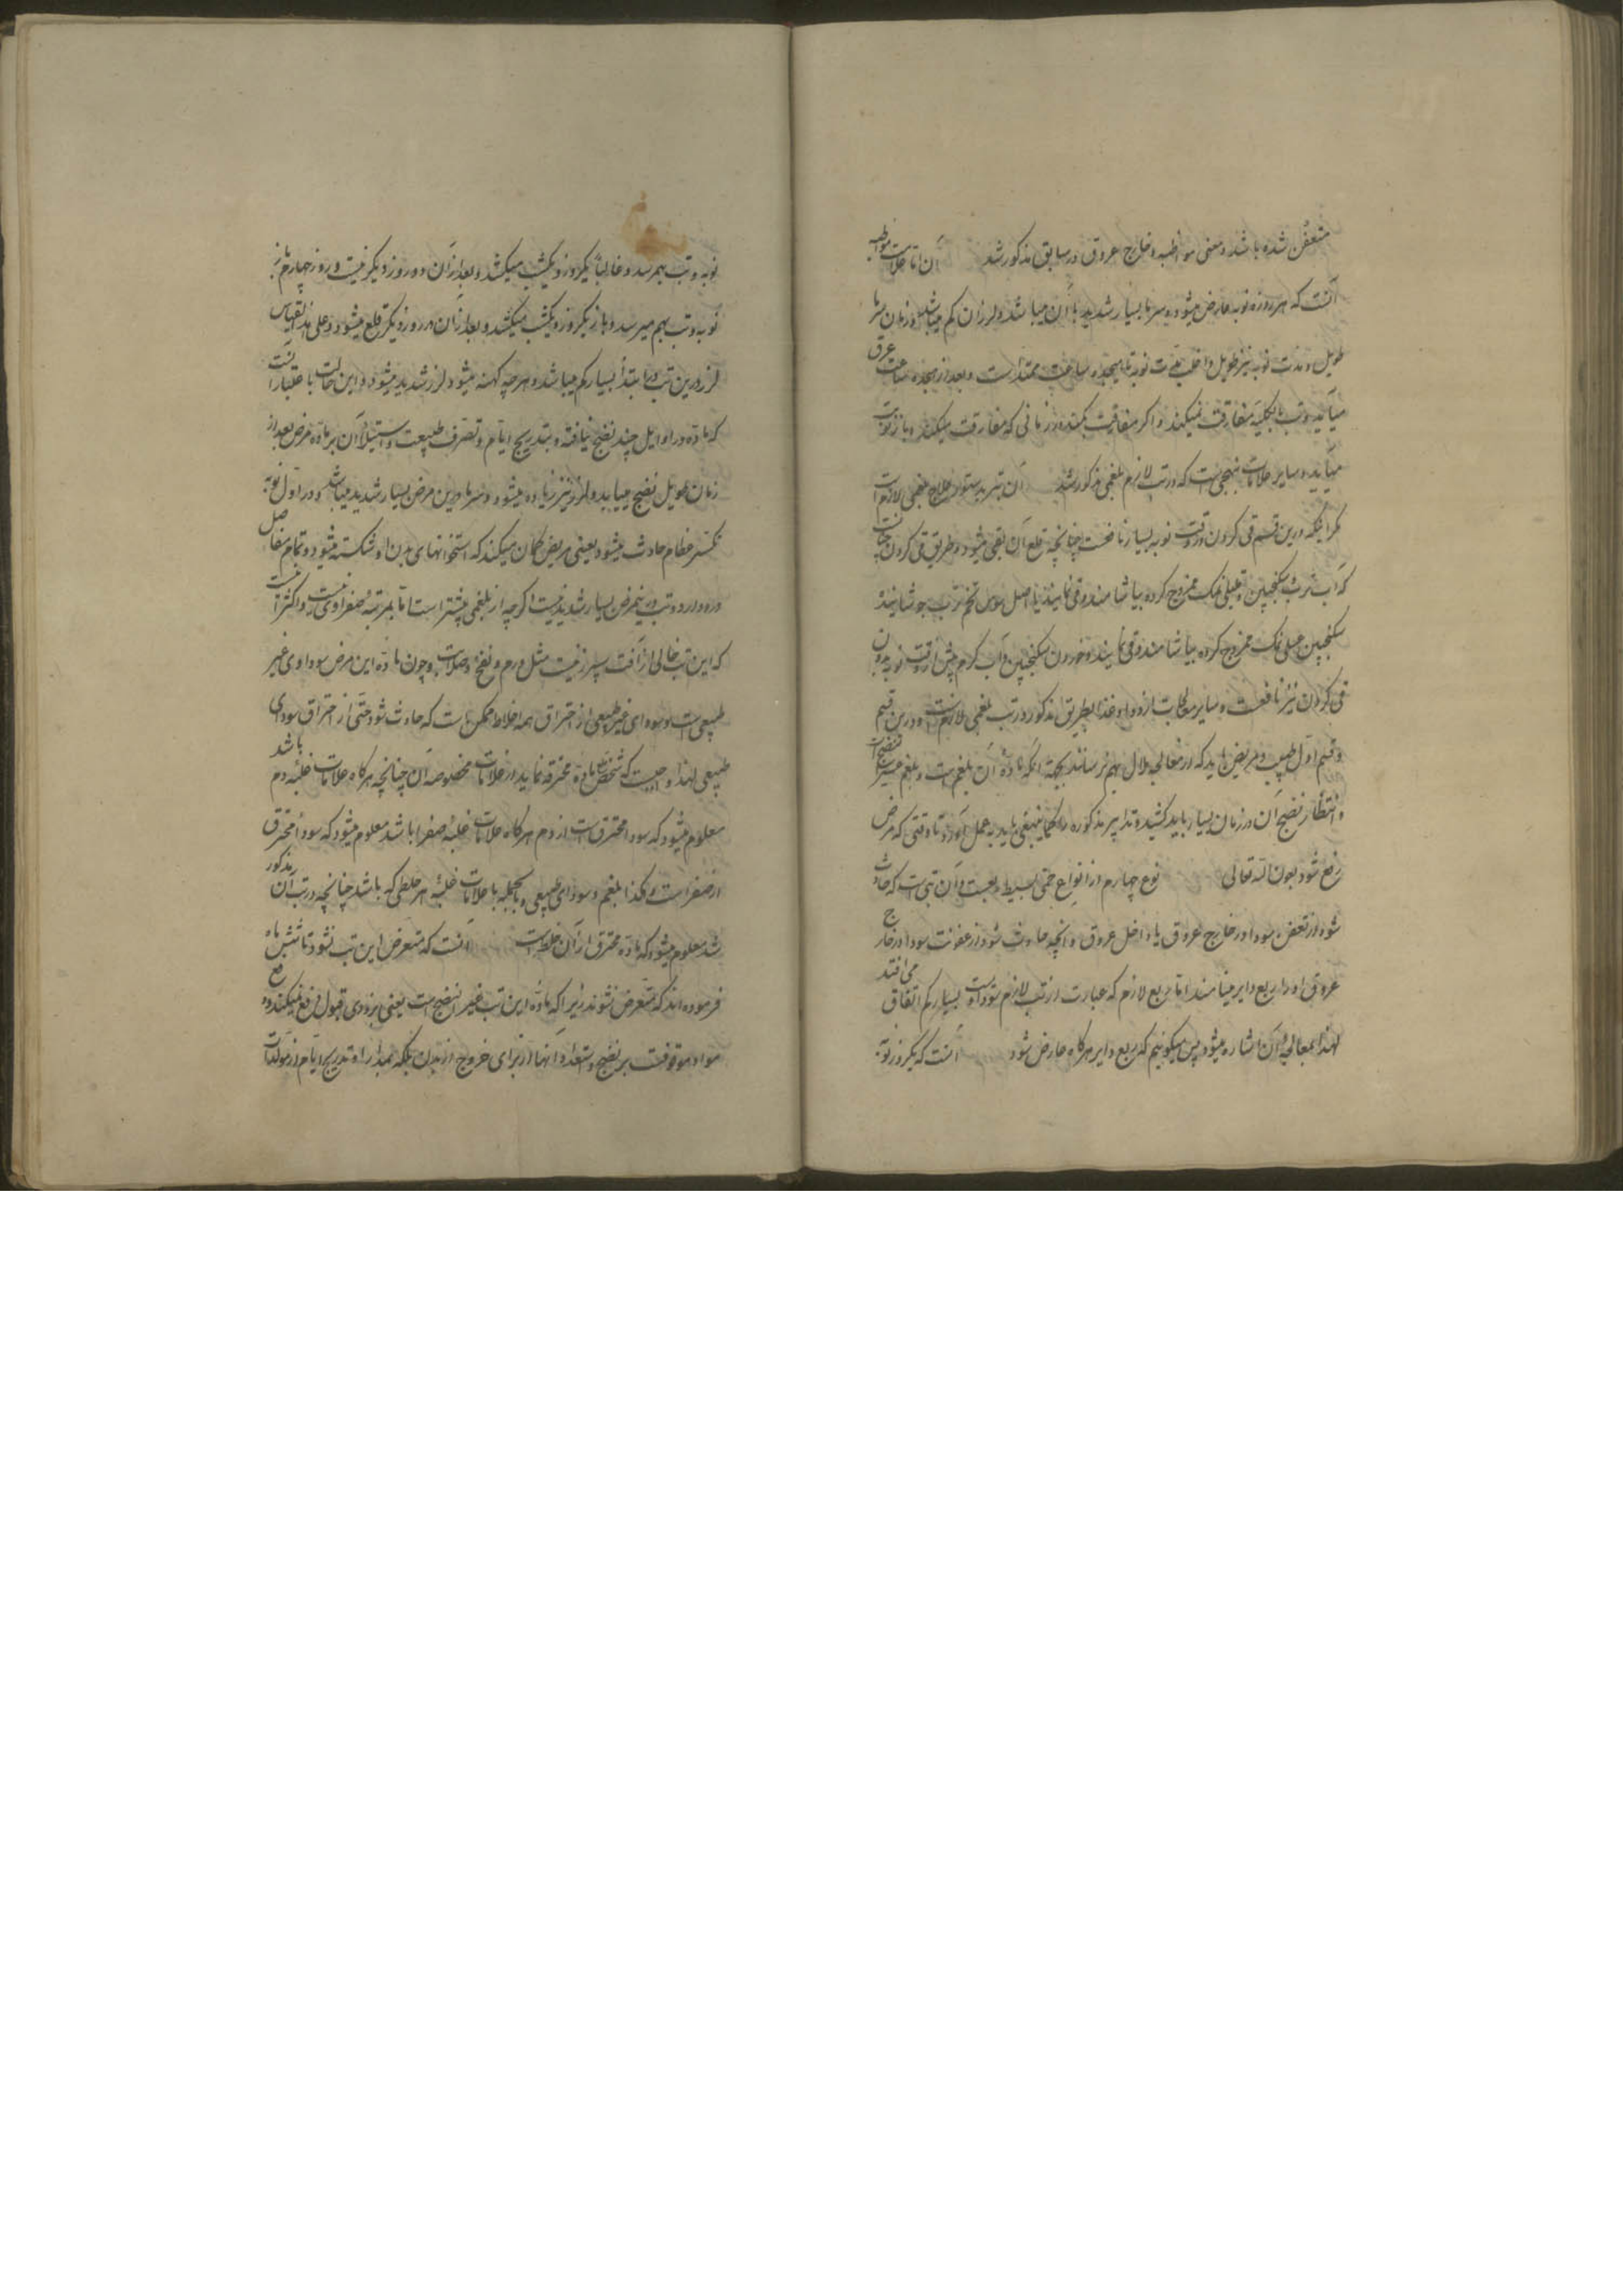 متعفن شده باشد و معنی مواظبه و خارج عروق در سابق مذکور شد آن اما علامات مواظبه
آنست که هر روزه نوبه عارض میشود و سرما بسیار شدید با آن میباشد و لرزان کم میباشد و زمان سرما
طویل و مدت نوبه نیز طویل و اغلب مدت نوبه تا هیجده ساعت ممتد است و بعد از هیجده ساعت عرق
میآید و تب بالکلیه مفارقت نمیکند و اگر مفارقت بکند در زمانی که مفارقت میکند و باز نوبت
میآید و سایر علامات بنهجی است که در تب لازم بلغمی مذکور شد آن بتدبیر بدستور علاج بلغمی لازم است
مگر اینکه درین قسم قی کردن در وقت نوبه بسیار نافعست چنانچه قلع آن بقی میشود و طریق قی کردن چنانست
که آب ترب و سکنجبین عسلی و نمک ممزوج کرده بیاشامند و قی نمایند یا اصل سوس و تخم ترب جوشانیده
سکنجبین عسلی و نمک ممزوج کرده بیاشامند و قی نمایند و خوردن سکنجبین و آب گرم پیش از وقت نوبه بدون
قی کردن نیز نافعست و سایر معالجات از دوا و غذا بطریق مذکور در تب بلغمی لازم است و درین قسم
و قسم اول طبیب و مریض باید که از معالجه ملال بهم نرسانند بجهة آنکه مادهٔ آن بلغم است و بلغم عسیر النضج است
و انتظار نضج آن در زمان بسیار باید کشید و تدابیر مذکوره را کما ینبغی باید به عمل آورد تا وقتی که مرض
رفع شود بعون الله تعالی نوع چهارم از انواع حمی بسیط ربعست و آن تبی است که حادث
شود از تعفن سودا در خارج عروق یا داخل عروق و آنچه حادث شود از عفونت سودا در خارج
عروق او را ربع دایر مینامند اما ربع لازم که عبارت از تب لازم سوداوی است بسیار کم اتفاق می افتد
لهذا بمعالجهٔ آن اشاره میشود پس میگوئیم که ربع دایر هرگاه عارض شود آنست که یکروز نوبه
نوبه و تب بهمرسد و غالباً یکروز و یکشب میکشد و بعد از آن دو روز دیگر نیست و روز چهارم باز
نوبه و تب بهم میرسد و باز یکروز و یکشب میکشد و بعد از آن دو روز دیگر قلع میشود و علی هذا القیاس
لرز درین تب در ابتدا بسیار کم میباشد و هر چه کهنه میشود لرز شدید میشود و این حالت باعتبار آنست
که ماده در اوایل چند نضج نیافته و بتدریج ایام و تصرف طبیعت و استیلا آن بر ماده مرض بعد از
زمان طویل نضج مییابد و لرز نیز زیاده میشود و سرما درین مرض بسیار شدید میباشد و در اول نوبه
تکسر عظام حادث میشود یعنی مریض گمان میکند که استخوانهای بدن او شکسته میشود و تمام مفاصل
درد دارد و تب درینمرض بسیار شدید نیست اگر چه از بلغمی بیشتر است اما بمرتبهٔ صفراوی نیست و اکثر آنست
که این تب خالی از آفت سپرز نیست مثل ورم و نفخ و صلابت و چون مادهٔ این مرض سوداوی غیر
طبیعی است و سودای غیر طبیعی از احتراق همه اخلاط ممکن است که حادث شود حتی از احتراق سودای
طبیعی لهذا واجبست که تشخیص ماده محترقه نماید از علامات مخصوصه آن چنانچه هر گاه علامات غلبه دم باشد
معلوم میشود که سودا محترقست از دم و هرگاه علامات غلبهٔ صفرا باشد معلوم میشود که سودا محترق
از صفراست و هکذا بلغم و سودای طبیعی و بالجمله با علامات غلبهٔ هر خلطی که باشد چنانچه در تب آن مذکور
شد معلوم میشود که ماده محترق از آن خلط است آنست که متعرض این تب نشود تا شش ماه
فرموده اند که متعرض نشوند زیرا که مادهٔ این تب عسیر النضج است یعنی بزودی قبول نمیکند و دفع
مواد موقوفست بر نضج و استعداد آنها از برای خروج از بدن بلکه بمدارا و تدریج ایام از مولدات